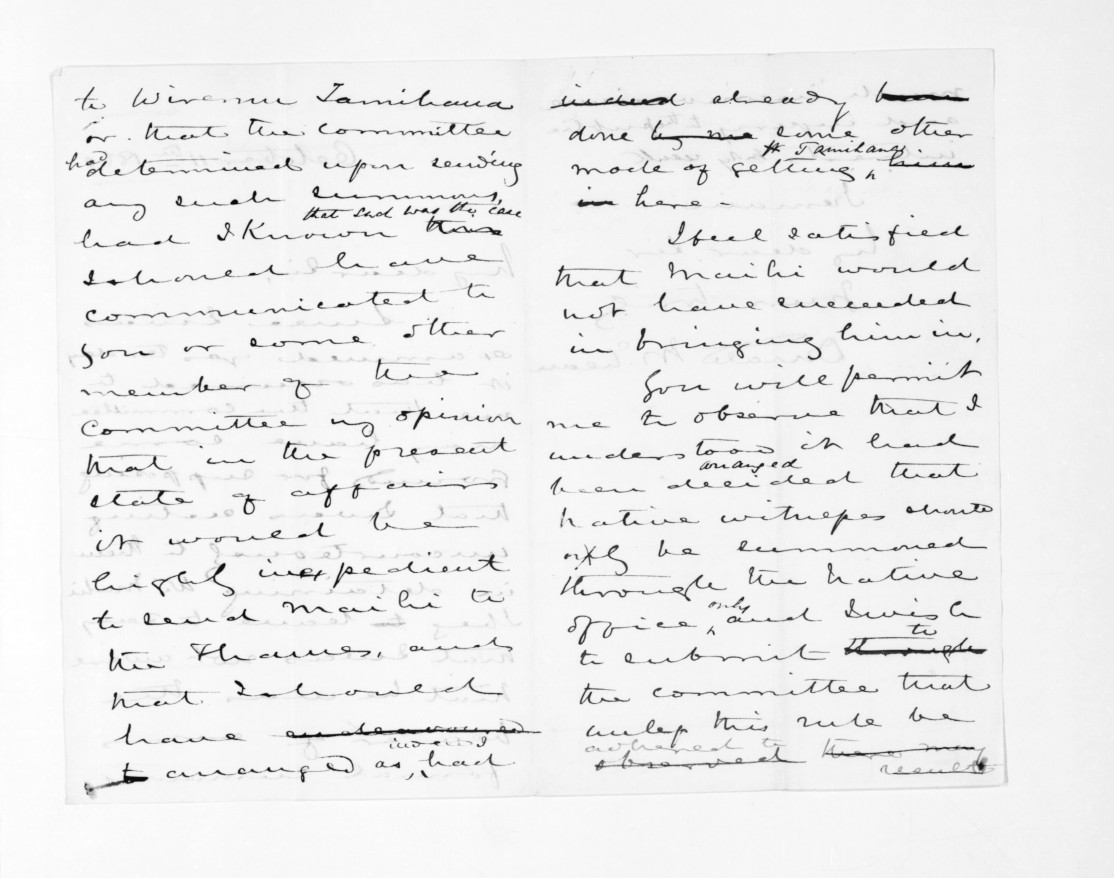 to Wiremu Tamihana
or that the committee
had determined upon sending
any such summons,
that such was the case
had I Known this
I should have
communicated to
you or some other
member of the
committee my opinion
that in the present
state of affairs
it would be
highly inexpedient
to send Maihi to
the Thames, and
that I should
have endeavoured
indeed I
to arranged as, had
indeed already been
done by me some other
W Tamihana
mode of getting him
in here -
I feel satisfied
that Maihi would
not have succeeded
in bringing him in.
You will permit
me to observe that I
understood it had
arranged
been decided that
Native witnesses should
only be summoned
through the Native
only
office, and I wish
to
to submit through
the committee that
unless this rule be
adhered to
observed there may
result